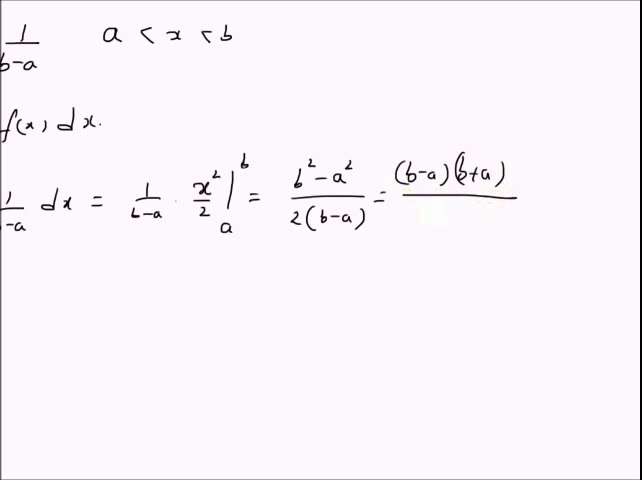 1/(b-a) a < x < b
f(x) dx.
1/(b-a) dx = 1/(b-a) · x²/2 |ₐᵇ = (b² - a²)/(2(b-a)) = (b-a)(b+a)